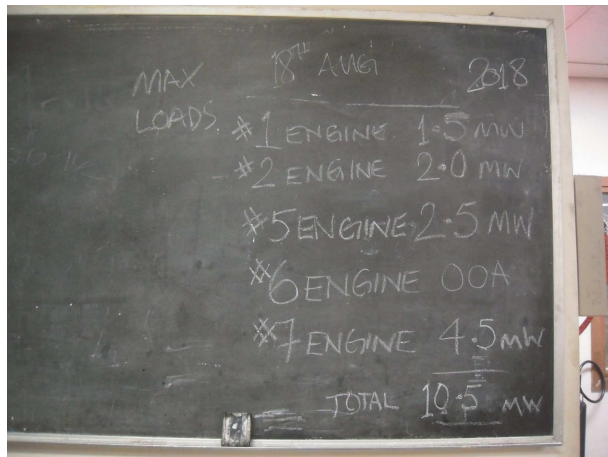 18TH AUG 2018
MAX
LOADS.
#1 ENGINE 1.5 MW
#2 ENGINE 2.0 MW
#5 ENGINE 2.5 MW
#6 ENGINE OOA
#7 ENGINE 4.5 MW
TOTAL 10.5 MW